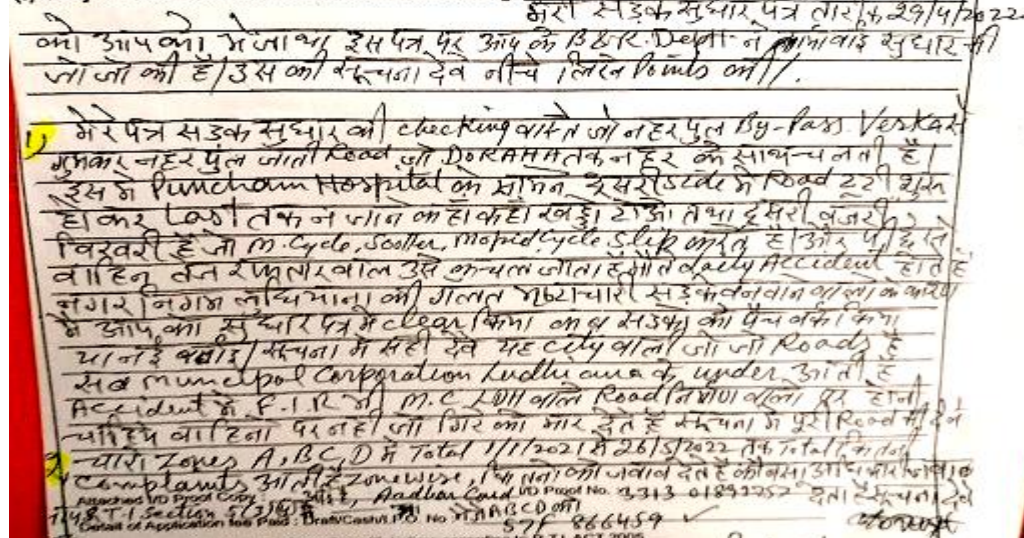 मेरा सड़क सुधार पत्र तारीक 29/4/2022
को आपको भेजा था इस पत्र पर आप के B&R. Deptt ने कार्यवाई सुधार की
जो जो की है। उस की सूचना देवे नीचे लिखे Points की।
1, मेरे पत्र सड़क सुधार की checking वास्ते जो नहर पुल By-Pass Verka से
घुमकर नहर पुल जाती Road जो DORAHA तक नहर के साथ चलती है।
इस में Puncham Hospital के सामने दूसरी side में Road टूटी शुरू
होकर Last तक न जाने कहां कहां खड्डे टोऐ तथा दूसरी बजरी
बिखरी है जो M.Cycle, Scotter, Mopid Cycle Slip करते है। और पीछे से
वाहिन तेज रफतार वाले उसे कुचल जाता है Daily Accident होते है
नगर निगम लुधियाना की गलत भ्रष्टाचारी सड़के बनवाने वालो के कारण
में आपको सुधार पत्र में clear किया कब सड़को को पैच वर्क किया
या नई बनाई। सूचना में सही देवे यह city वाली जो जो Roads है
सब Muncipol Corporation Ludhiana के under आती है
Accident में F.I.R भी M.C LDH वाले Road निर्माण वालो पर होनी
चाहिये वाहिनो पर नही जो गिरे को मार देते है सूचना में पूरी Road की देवे
चारो Zones A, B, C, D में Total 1/1/2021 से 26/5/2022 तक Total कितनी
Complaints आती है Zonewise, कितना को जवाब देते है
Attached I/D Proof Copy : Aadhar Card I/D Proof No. 3313 01892252 देता है सूचना देवे
R.T.I. Section ABCD की
Detail of Application fee Paid : Draft/Cash/I.P.O. No 57F 866459 ✓